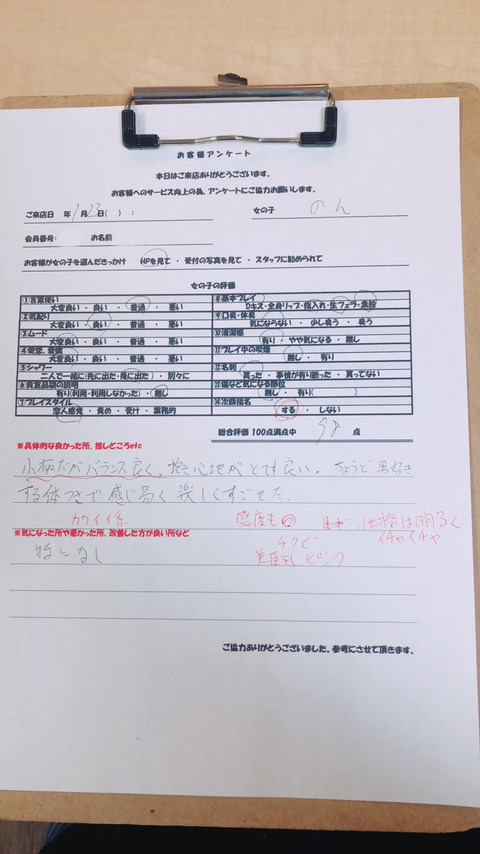 お客様アンケート
本日はご来店ありがとうございます。
お客様へのサービス向上の為、アンケートにご協力お願いします。
ご来店日 年 1月 23日( ) : 女の子 のん
会員番号: お名前
お客様が女の子を選んだきっかけ HPを見て ・ 受付の写真を見て ・ スタッフに勧められて
女の子の評価
①言葉使い
大変良い ・ 良い ・ 普通 ・ 悪い
②気配り
大変良い ・ 良い ・ 普通 ・ 悪い
③ムード
大変良い ・ 良い ・ 普通 ・ 悪い
④愛想、愛嬌
大変良い ・ 良い ・ 普通 ・ 悪い
⑤シャワー
二人で一緒に(先に出た・後に出た) ・ 別々に
⑥貴重品袋の説明
有り(利用・利用しなかった) ・ 無し
⑦プレイスタイル
恋人感覚 ・ 責め ・ 受け ・ 業務的
⑧基本プレイ
Dキス・全身リップ・指入れ・生フェラ・素股
⑨口臭・体臭
気にならない ・ 少し臭う ・ 臭う
⑩清潔感
有り ・ やや気になる ・ 無し
⑪プレイ中の喫煙
無し ・ 有り
⑫名刺
貰った ・ 事情が有り断った ・ 貰ってない
⑬傷など気になる部位
無し ・ 有り( )
⑭次回指名
する ・ しない
総合評価 100点満点中 98 点
※具体的な良かった所、推しどころetc
小柄だがバランス良く、抱き心地がとても良い。ちょうど男好き
する体つきで感じ易く楽しくすごせた。
カワイイ系 感度も 性格は明るく
イチャイチャ
※気になった所や悪かった所、改善した方が良い所など
特になし
チクビ
ピンク
ご協力ありがとうございました。参考にさせて頂きます。